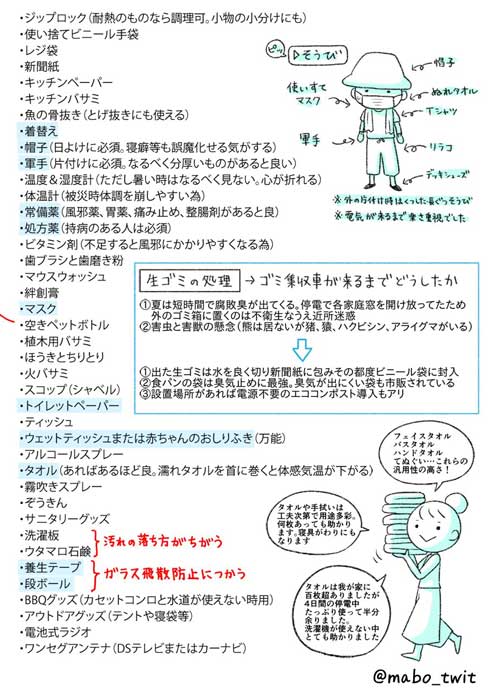 ・ジップロック（耐熱のものなら調理可。小物の小分けにも）
・使い捨てビニール手袋
・レジ袋
・新聞紙
・キッチンペーパー
・キッチンバサミ
・魚の骨抜き（とげ抜きにも使える）
・着替え
・帽子（日よけに必須。寝癖等も誤魔化せる気がする）
・軍手（片付けに必須。なるべく分厚いものがあると良い）
・温度＆湿度計（ただし暑い時はなるべく見ない。心が折れる）
・体温計（被災時体調を崩しやすい為）
・常備薬（風邪薬、胃薬、痛み止め、整腸剤があると良）
・処方薬（持病のある人は必須）
・ビタミン剤（不足すると風邪にかかりやすくなる為）
・歯ブラシと歯磨き粉
・マウスウォッシュ
・絆創膏
・マスク
・空きペットボトル
・植木用バサミ
・ほうきとちりとり
・火バサミ
・スコップ（シャベル）
・トイレットペーパー
・ティッシュ
・ウェットティッシュまたは赤ちゃんのおしりふき（万能）
・アルコールスプレー
・タオル（あればあるほど良。濡れタオルを首に巻くと体感気温が下がる）
・霧吹きスプレー
・ぞうきん
・サニタリーグッズ
・洗濯板
・ウタマロ石鹸
汚れの落ち方がちがう
・養生テープ
・段ボール
ガラス飛散防止につかう
・BBQグッズ（カセットコンロと水道が使えない時用）
・アウトドアグッズ（テントや寝袋等）
・電池式ラジオ
・ワンセグアンテナ（DSテレビまたはカーナビ）
ピッ
▷そうび
帽子
使いすて
マスク
ぬれタオル
Tシャツ
軍手
リラコ
デッキシューズ
※外の片付け時はくつした長ぐつそうび
※電気が来るまで楽さ重視でした
生ゴミの処理→ゴミ集収車が来るまでどうしたか
①夏は短時間で腐敗臭が出てくる。停電で各家庭窓を開け放ってたため
外のゴミ箱に置くのは不衛生なうえ近所迷惑
②害虫と害獣の懸念（熊は居ないが猪、猿、ハクビシン、アライグマがいる）
①出た生ゴミは水を良く切り新聞紙に包みその都度ビニール袋に封入
②食パンの袋は臭気止めに最強。臭気が出にくい袋も市販されている
③設置場所があれば電源不要のエココンポスト導入もアリ
フェイスタオル
バスタオル
ハンドタオル
てぬぐい…これらの
汎用性の高さ！
タオルや手拭いは
工夫次第で用途多彩。
何枚あっても助かり
ます。寝具がわりにも
なります
タオルは我が家に
百枚超ありましたが
4日間の停電中
たっぷり使って半分
余りました。
洗濯機が使えない中
とても助かりました
@mabo_twit